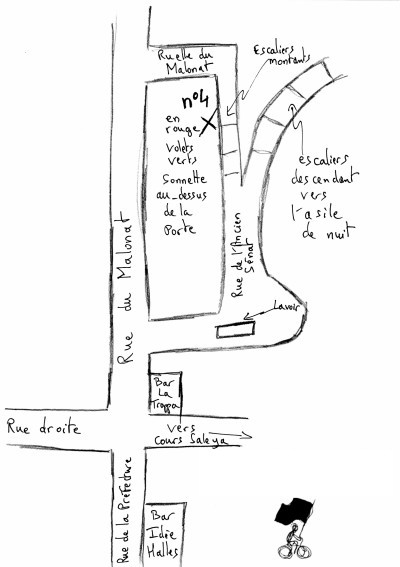 Ruelle du
Malonat
Escaliers
montants
n°4
en
rouge
volets
verts
Sonnette
au-dessus
de la
Porte
escaliers
descendant
vers
l'asile
de nuit
Rue de l'Ancien
Sénat
Rue du Malonat
Lavoir
Bar
La
Trappa
Rue droite
vers
Cours Saleya
Rue de la Préfecture
Bar
Idée
Halles